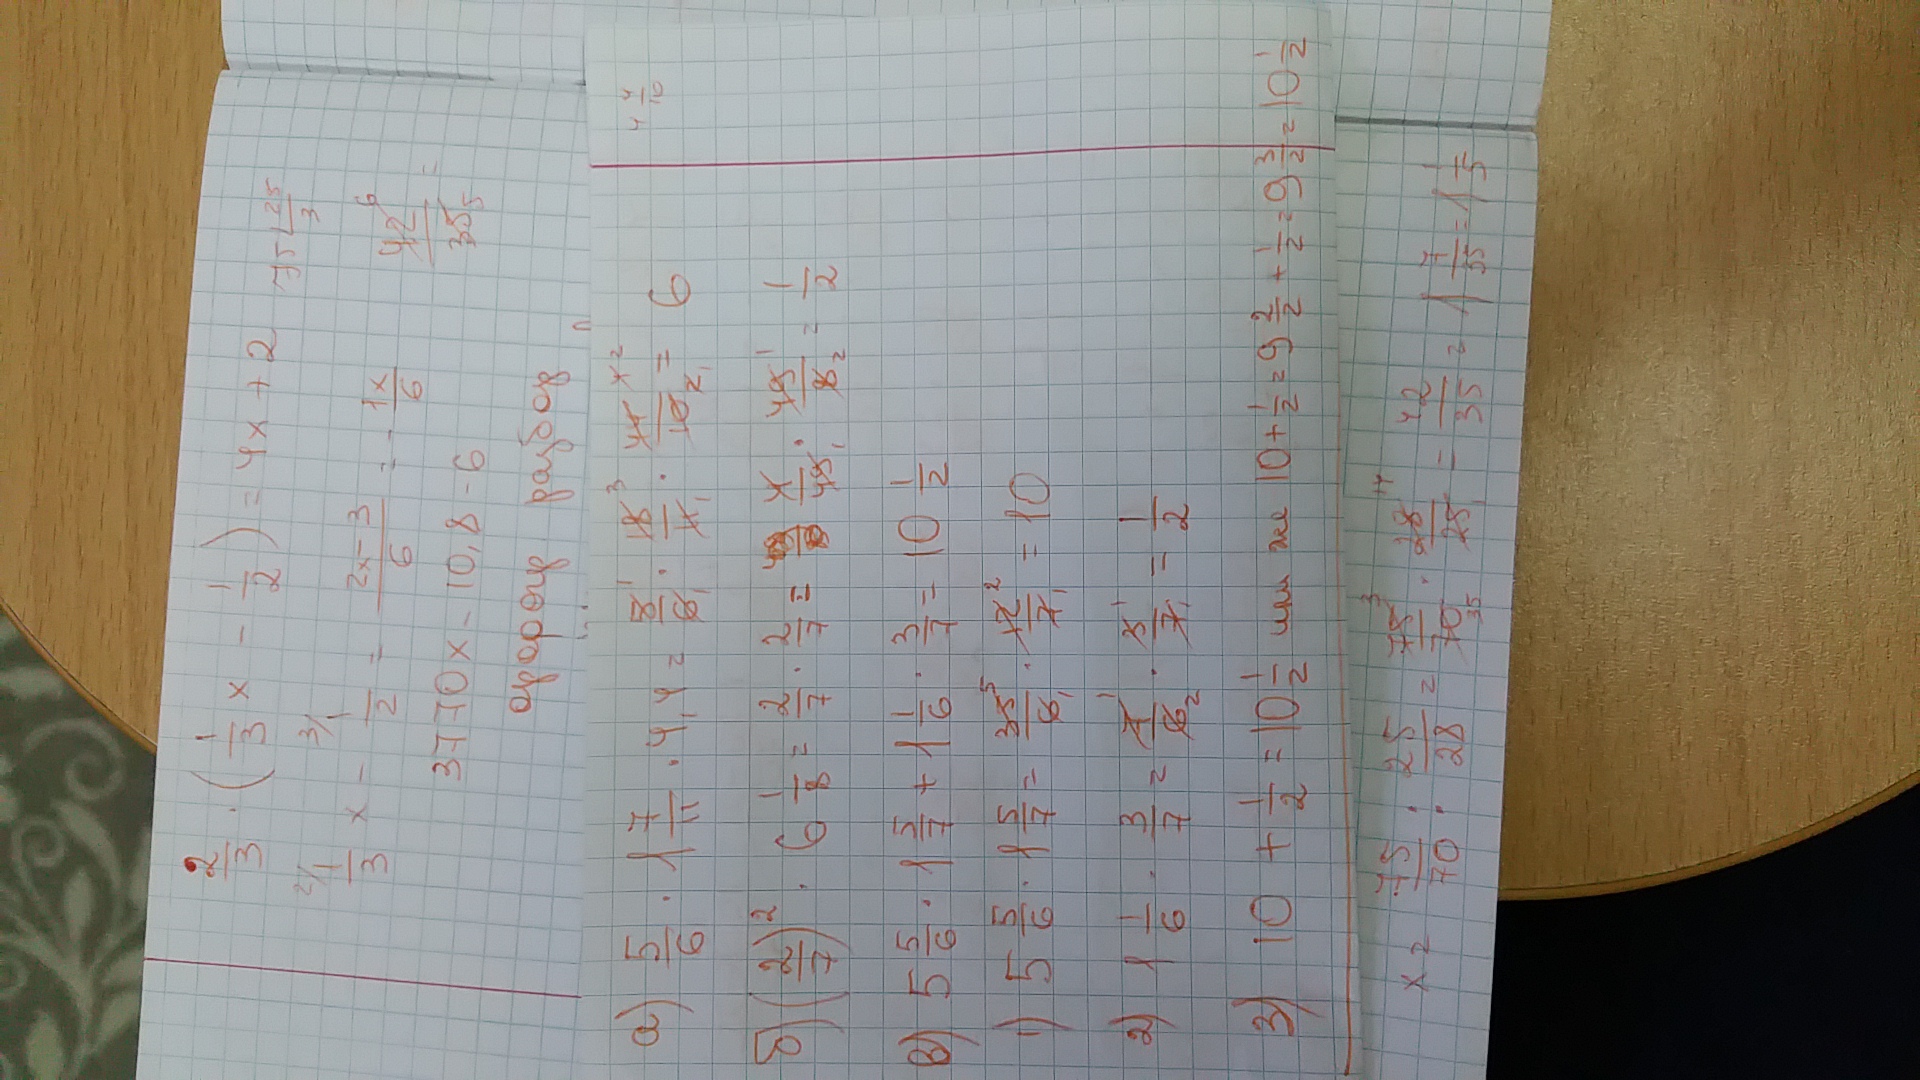 2/3 · (1/3 x − 1/2) = 4x + 2
75 | 25
3
1/3 x − 1/2 = 2x−3/6 = − 1x/6
42/35 =
3770x − 10,8 − 6
4 4/10
а) 5/6 · 1 7/11 · 4,4 = 5/6 · 18/11 · 44/10 = 6
б) (2/7)² · 6 1/8 = 2/7 · 2/7 · 49/8 = 1/2
в) 5 5/6 · 1 5/7 + 1 1/6 · 3/7 = 10 1/2
1) 5 5/6 · 1 5/7 = 35/6 · 12/7 = 10
2) 1 1/6 · 3/7 = 7/6 · 3/7 = 1/2
3) 10 + 1/2 = 10 1/2 или же 10 + 1/2 = 9 2/2 + 1/2 = 9 3/2 = 10 1/2
x = 75/70 : 25/28 = 75/70 · 28/25 = 42/35 = 1 7/35 = 1 1/5